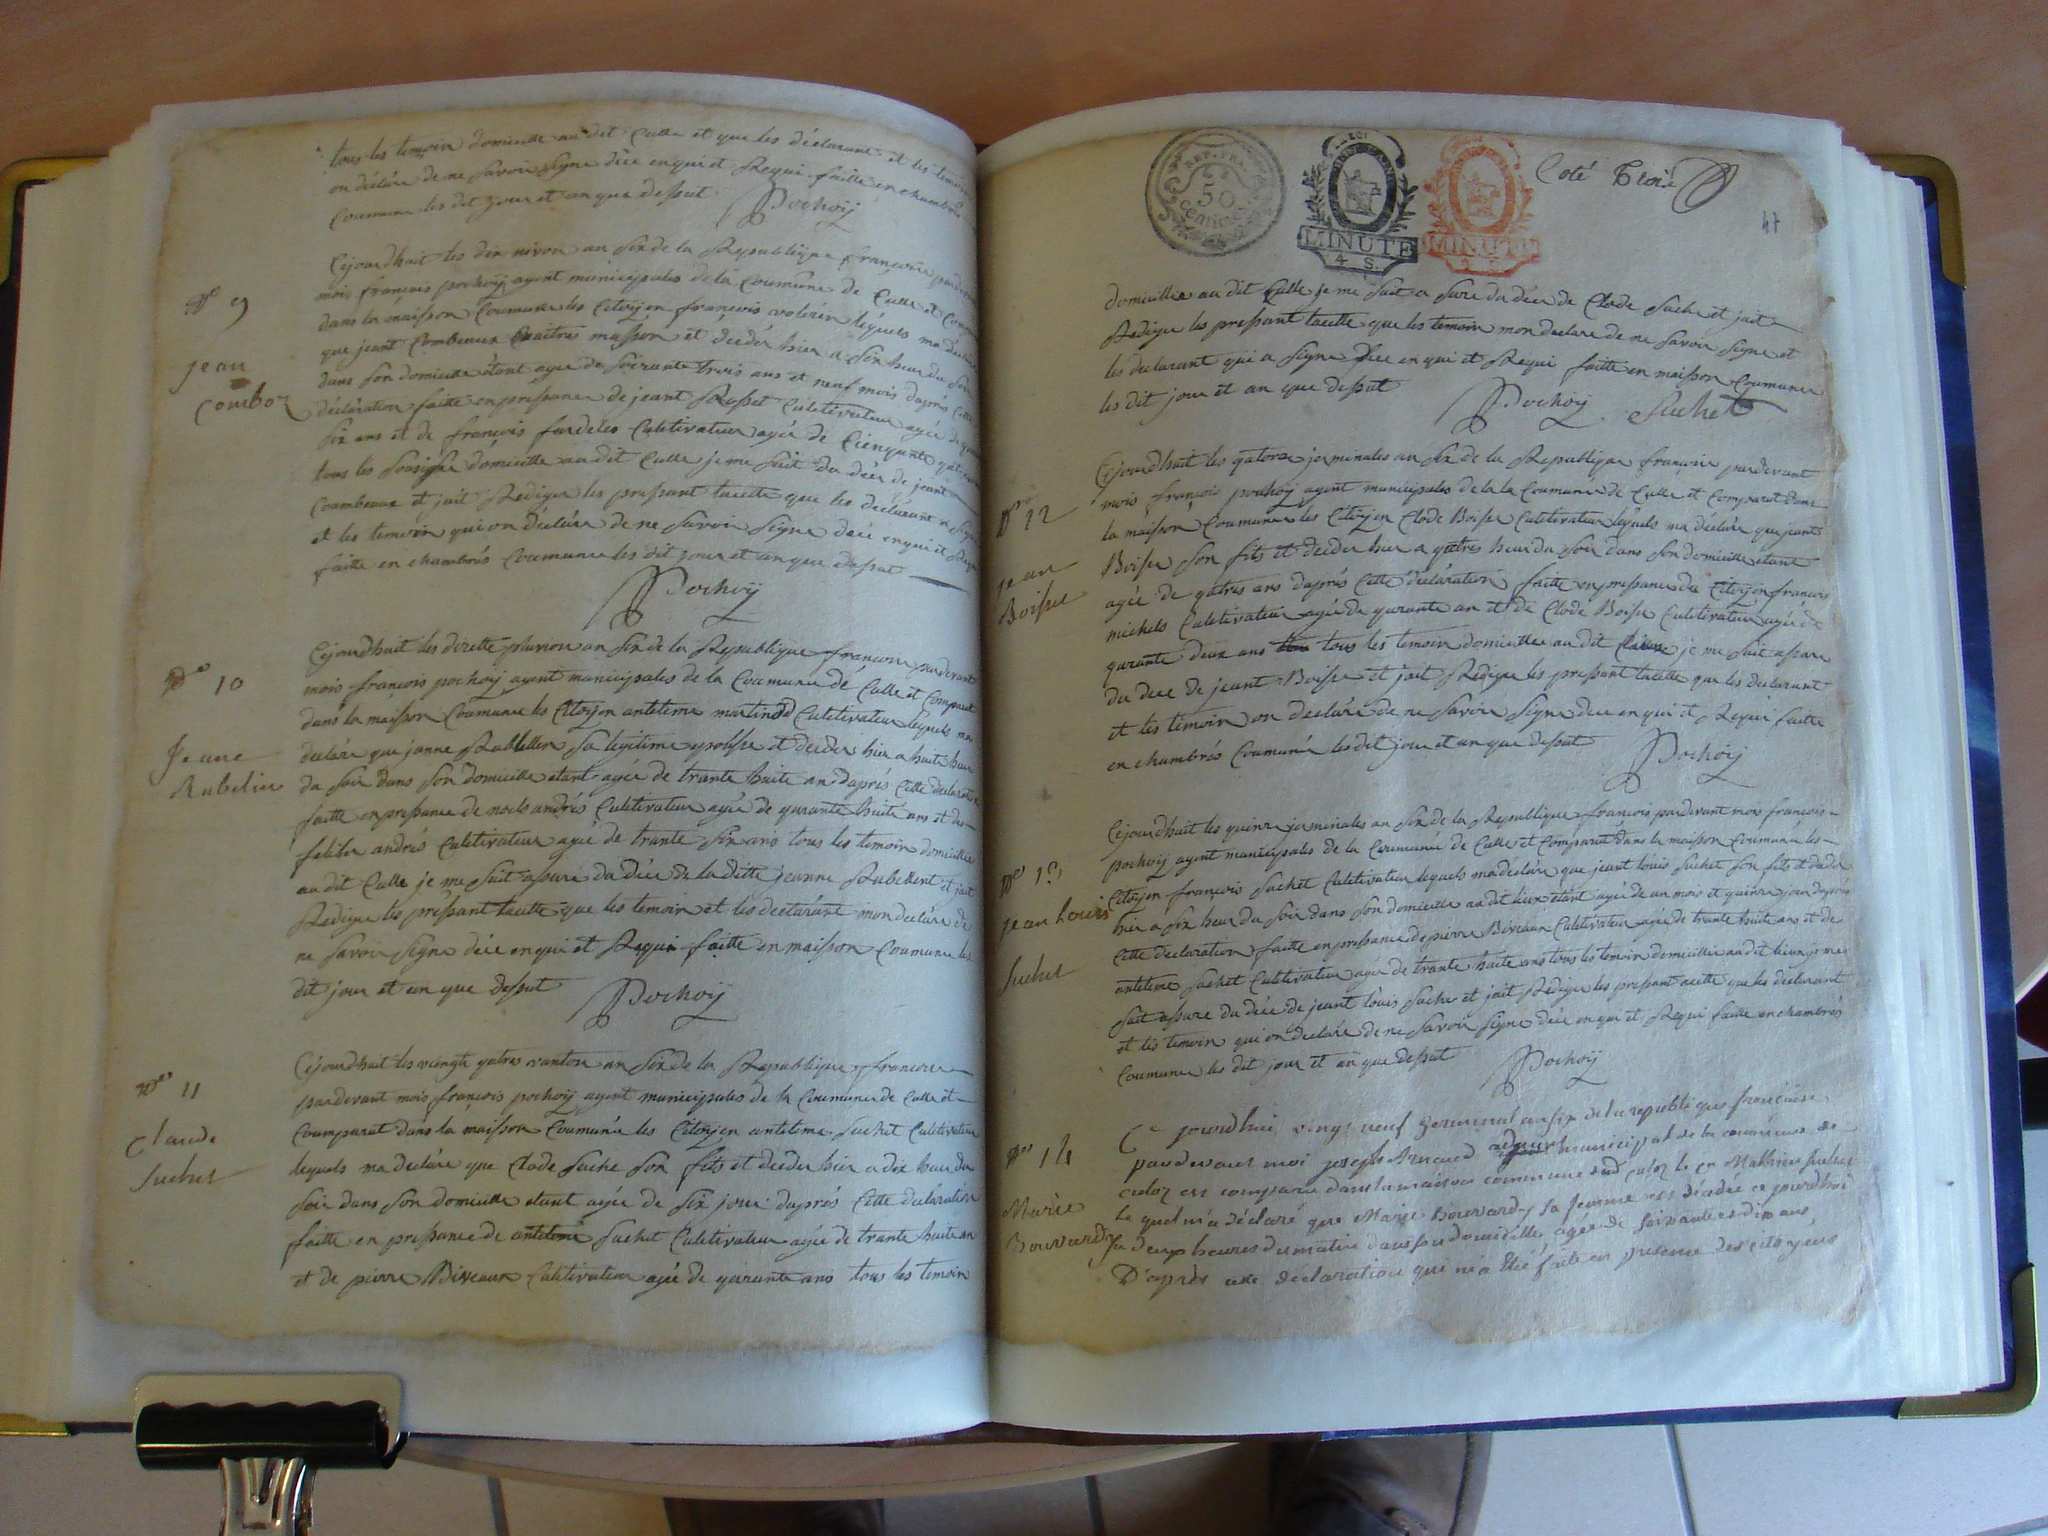 tous les temoin domicille au dit Culle et que les déclarant et les temoin
on déclére de ne savoir signe dèce enqui et Requi faitte en chambrés
Coumune les dit jour et an que dessut
Pochoÿ
Cejourdhuit les dix nivou an six de la Republique francoise pardevant
mois françois pochoÿ agent municipales de la Coumune de Culle et
dans la maisson Coumune les Citoyen francois lequels ma declare
que jeant Combeaux maitres masson et décder hier a six heur du Soir
dans son domicille étent agée de soixante trois ans et neuf mois daprés Cette
déclération faitte en pressance de jeant Rosset Culetivateur agée de
six ans et de françois fardeles Culetivateur agée de Cienquante
tous les domicille au dit Culle je me suit du déce de jeant
Coumbeaux et jait Rediger les pressant tacette que les declarant
et les temoin qui on déclére de ne savoir signe décé enqui et Requi
faitte en chambrés Coumune les dit jour et an que dessut
Pochoÿ
No 9
jean
Comboz
Cejourdhuit les dizette pluviou an six de la Republique francoise pardevant
mois françois pochoÿ agent municipales de la Coumune de Culle et Comparut
dans la maisson Coumune les Citoyen antelme martinod Culetivateur lequels ma
declére que janne Rubellen sa legitime epousse et decder hier a huite heur
du soir dans son domicille étant agée de trante huite ans daprés Cette declaration
faitte en pressance de noels andrés Culetivateur agée de quarante huite ans et de
felibes andrés Culetivateur agée de trante six ans tous les temoin domicillie
au dit Culle je me suit assuré du déce de la ditte jeanne Rubellent et jait
Rediger les pressant tacette que les temoin et les declérant mon declére de
ne savoir signe dèce enqui et Requi faitte en maisson Coumune les
dit jour et an que dessut
Pochoÿ
No 10
Jeane
Rubelin
Cejourdhuit les veingte qatres vantou an six de la Republique francoise
pardevant mois françois pochoÿ agent municipales de la Coumune de Culle et
Coumparut dans la maisson Coumune les Citoyen antelme Suchet Culetivateur
lequels ma declére que Clode Suche son fits et decder hier a dix heur du
soir dans son domicille etant agée de six jour daprés Cette declération
faitte en pressance de antelme Suchet Culetivateur agée de trante huite an
et de pierre Biveaux Culetivateur agée de quarante ans tous les temoin
No 11
Claude
Suchet
REP. FRA.
50
centimes
LOI
MINUTE
4 S.
MINUTE
Coté Troié
47
domicillie au dit Culle je me suit a sure du déce de Clode Suche et jait
Rediger les pressant tacette que les temoin mon declare de ne savoir signe et
les declarant qui a signe dèce enqui et Requi faitte en maisson Coumune
les dit jour et an que dessut
Pochoÿ Suchet
Cejourdhuit les qatorze jerminales an six de la Republique francoise pardevant
mois françois pochoÿ agent municipales de la Coumune de Culle et Comparut dans
la maisson Coumune les Citoyen Clode Boisser Culetivateur lequels ma declére que jeant
Boisser son fits et decder hier a qatres heur du soir dans son domicille etant
agée de qatres ans daprés Cette declération faitte en pressance de Citoyen francois
michels Culetivateur agée de quarante an et de Clode Boisser Culetivateur agée de
quarante deux ans tous les temoin domicillie au dit Culle je me suit assure
du dece de jeant Boisser et jait Rediger les pressant tacette que les declarant
et les temoin on declére de ne savoir signe dece enqui et Requi faitte
en chambrés Coumuné les dit jour et an que dessut
Pochoÿ
No 12
jean
Boisser
Cejourdhuit les quinze jerminales an six de la Republique francois pardevant mois francois
pochoÿ agent municipales de la Coumune de Culle et Comparut dans la maisson Coumune les
Citoyen françois Suchet Culetivateur lequels ma declére que jeant louis Suchet son fits et decder
hier a six heur du soir dans son domicille au dit lieux etant agée de un mois et quinze jour daprés
Cette declaration faitte en pressance de pierre Biveaux Culetivateur agée de trante huite ans et de
antelme Suchet Culetivateur agée de trante huite ans tous les temoin domicillie au dit lieux je me
suit assure du dece de jeant louis Suche et jait Rediger les pressant acette que les declarant
et les temoin qui on declére de ne savoir signe dèce enqui et Requi faitte en chambrés
Coumune les dit jour et an que dessut
Pochoÿ
No 13
jean Louis
Suchet
Ce jourd'hui vingt neuf germinal an six de la republique française
pardevant moi joseph Arnaud municipal de la commune de
culoz est comparu dans la maison commune dud culoz le cn Mathieu Suchet
le quel m'a déclaré que Marie Bouvard sa femme est décédée ce jourdhui
a deux heures du matin dans son domicille, agée de soixante et dix ans,
D'après cette déclaration qui m'a été faite en presence des citoyens
No 14
Marie
Bouvard